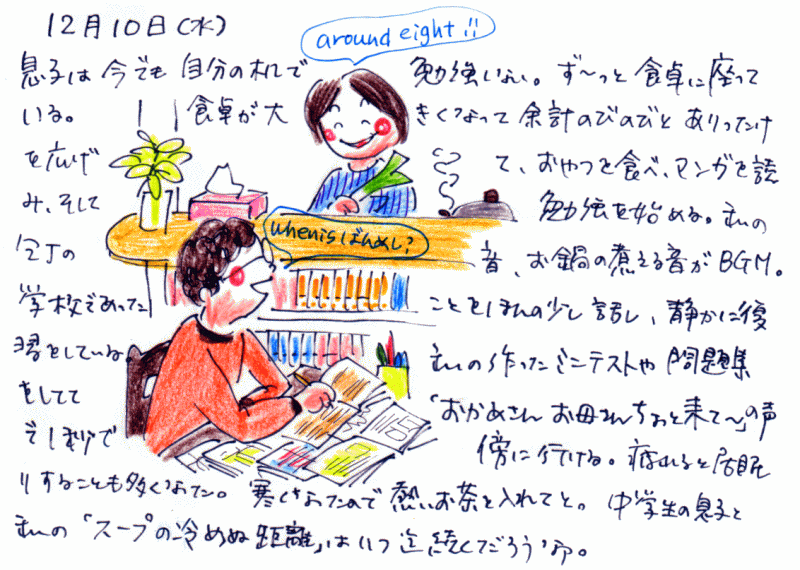 12月10日(水)
around eight !!
息子は今でも自分の机で勉強しない。ず〜っと食卓に座って
いる。食卓が大きくなって余計のびのびとありったけ
を広げて、おやつを食べ、マンガを読
み、そして勉強を始める。私の
包丁の音、お鍋の煮える音がBGM。
when is ばんめし?
学校であったことをほんの少し話し、静かに復
習をしている私の作ったミニテストや問題集
をしてて「おかあさん お母さんちょっと来て〜」の声
で傍に行ける。疲れると居眠
りすることも多くなった。寒くなったので熱いお茶を入れてと。中学生の息子と
私の「スープの冷めぬ距離」はいつ迄続くだろうか。